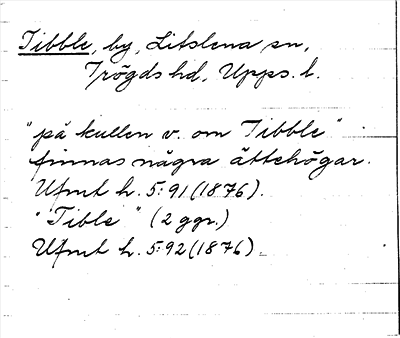 Tibble, by, Litslena sn,
Trögds hd, Upps. l.
"på kullen v. om Tibble"
finnas några ättehögar.
Ufmt h. 5:91 (1876).
"Tible" (2 ggr.)
Ufmt h. 5:92 (1876).